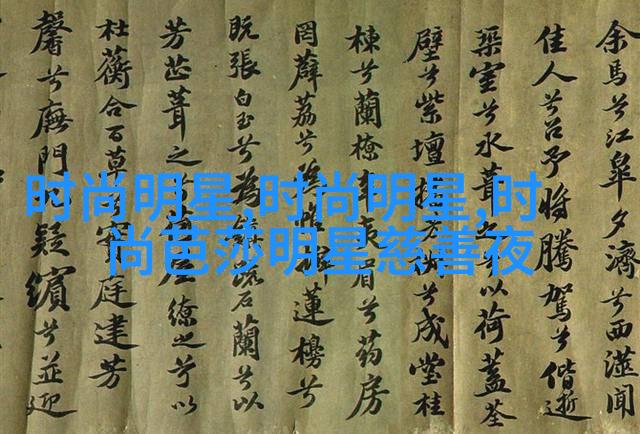 时尚明星,时尚明星,时
尚芭莎明星慈善夜
余馬兮江皋夕濟兮西澨聞
佳人兮召予將騰駕兮偕逝
築室兮水葺之兮以荷蓋荃
壁兮紫壇播芳椒兮成堂桂
棟兮蘭橑辛夷眉兮葯房
罔薜荔兮為帷擗蓮櫋兮
既張白玉兮為鎮疏石蘭兮以
芳芷葺之兮荷屋繚之兮以
杜蘅合百草兮實庭建芳
馨兮廡門疑繽兮並迎